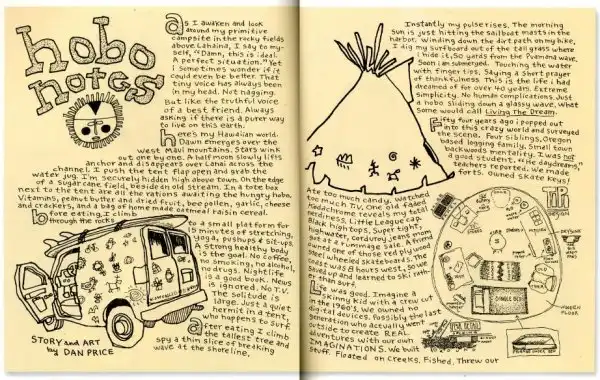 hobo
notes
As I awaken and look
around my primitive
campsite in the rocky fields
above Lahaina, I say to my-
self, "Damn, this is ideal.
A perfect situation." Yet
i sometimes wonder if it
could even be better. That
tiny voice has always been
in my head. Not nagging.
But like the truthful voice
of a best friend. Always
asking if there is a purer way
to live on this earth.
here's my Hawaiian world.
Dawn emerges over the
west Maui mountains. Stars wink
out one by one. A half moon slowly lifts
anchor and disappears over Lanai across the
channel. I push the tent flap open and grab the
water jug. I'm securely hidden high above town. On the edge
of a sugar cane field, beside an old stream. In a tote box
next to the tent are all the rations awaiting the hungry hobo.
Vitamins, peanut butter and dried fruit, bee pollen, garlic, cheese
and crackers, and a bag of home made oatmeal raisin cereal.
before eating, I climb
through the rocks to a small platform for
15 minutes of stretching,
yoga, pushups & sit-ups.
A strong healthy body
is the goal. No coffee,
no smoking, no alcohol,
no drugs. Nightlife
is a good book. News
is ignored. No T.V.
The solitude is
large. Just a quiet
hermit in a tent,
who happens to surf.
after eating I climb
the tallest tree and
spy a thin slice of breaking
wave at the shoreline.
STORY and ART
by DAN PRICE
Instantly my pulse rises. The morning
sun is just hitting the sailboat masts in the
harbor. Winding down the dirt path on my bike,
I dig my surfboard out of the tall grass where
i hide it, 50 yards from the Puamana wave.
Soon i am submerged. Touching the water
with finger tips, saying a short prayer
of thankfulness. This is the life i had
dreamed of for over 40 years. Extreme
simplicity. No mondo complications. Just
a hobo sliding down a glassy wave. What
some would call Living The Dream.
Fifty four years ago i popped out
into this crazy world and surveyed
the scene. Four siblings, Oregon
based logging family, small town
backwoods mentality. I was not
a good student. "He daydreams,"
teachers reported. We made
forts. Owned skate keys!
Ate too much candy, watched
too much T.V. One old faded
Kodachrome reveals my total
nerdiness. Little League cap,
black high tops, super tight,
highwater, corduroy jeans mom
got at a rummage sale. A friend
owned one of those red plywood
steel wheeled skateboards. The
coast was 8 hours west, so we
saved up and learned to ski rath-
er than surf.
Life was good. Imagine a
skinny kid with a crew cut
in the 1960's. We owned no
digital devices. Possibly the last
generation who actually went
outside to create REAL
adventures with our own
IMAGINATIONS. We built
stuff. Floated on creeks. Fished. Threw our
TIPI
DESIGN
WOODEN
FLOOR